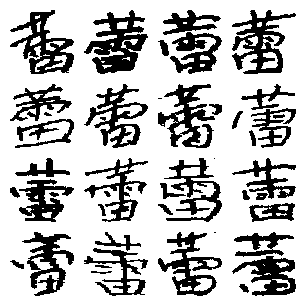 蕾蕾蕾蕾
蕾蕾蕾蕾
蕾蕾蕾蕾
蕾蕾蕾蕾